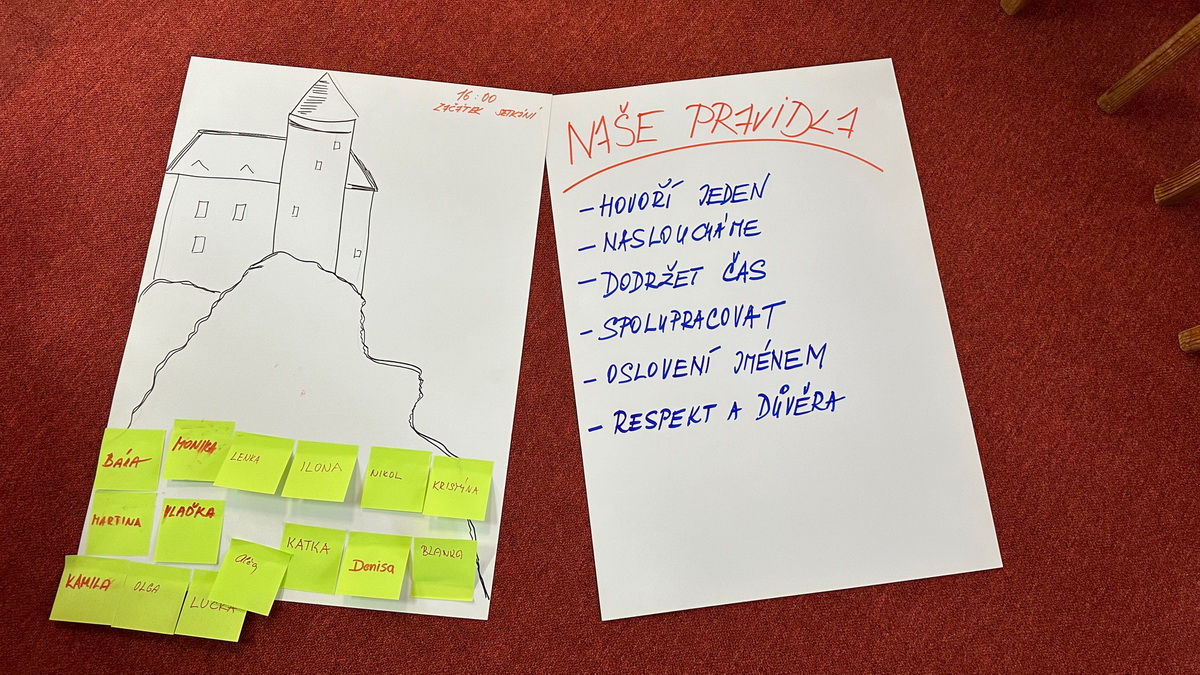 16:00
ZAČÁTEK SETKÁNÍ
BÁRA
MONIKA
LENKA
ILONA
NIKOL
KRISTÝNA
MARTINA
VLAĎKA
KATKA
Denisa
BLANKA
KAMILA
OLGA
LUCKA
NAŠE PRAVIDLA
- HOVOŘÍ JEDEN
- NASLOUCHÁME
- DODRŽET ČAS
- SPOLUPRACOVAT
- OSLOVENÍ JMÉNEM
- RESPEKT A DŮVĚRA